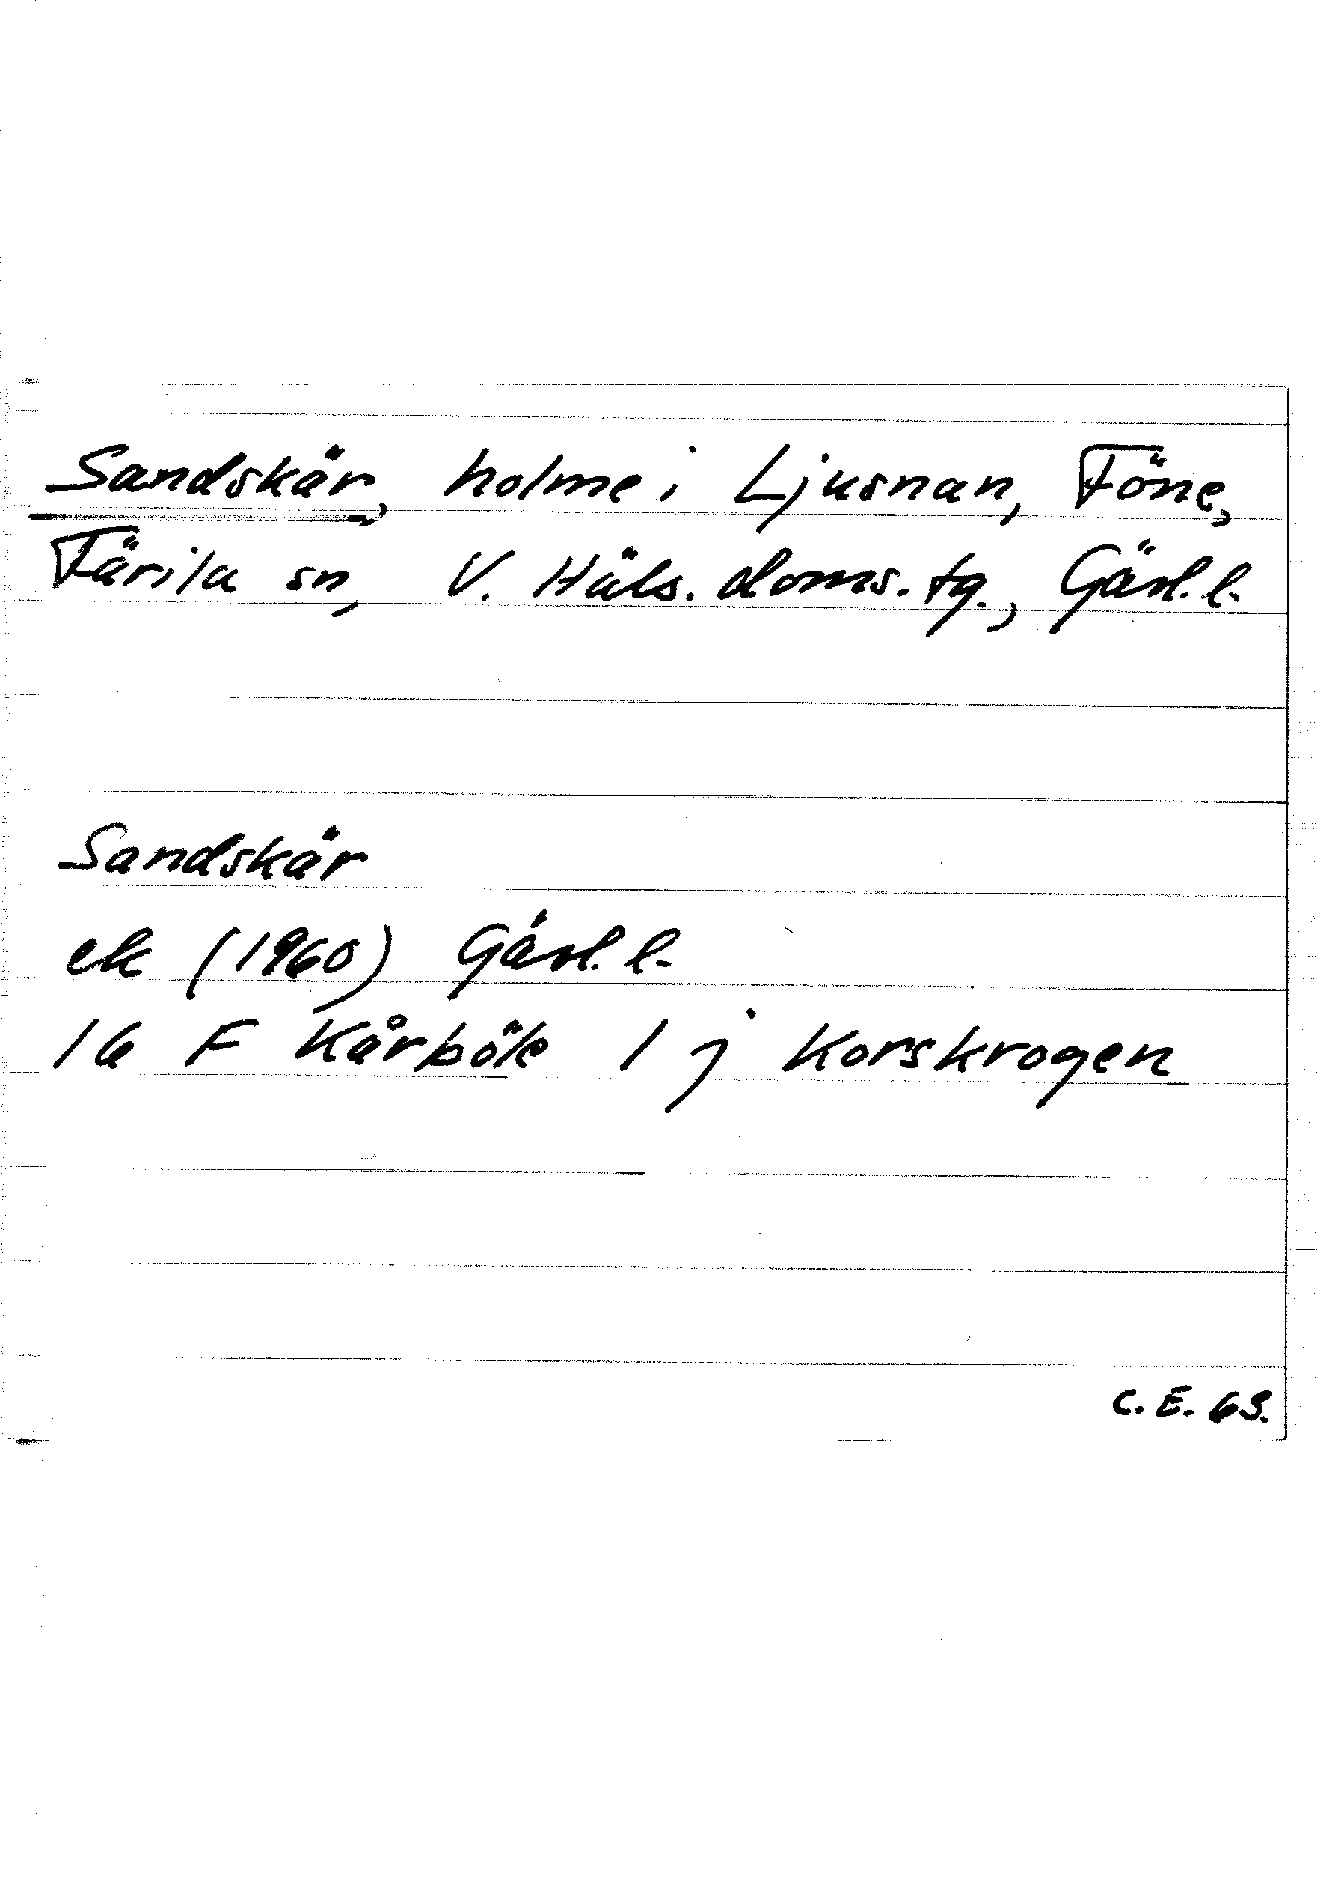 Sandskär, holme i Ljusnan, Föne,
Färila sn, V. Häls. doms. tg., Gävl. l.
Sandskär
ek (1960) Gävl. l.
16 F Kårböle 1 j Korskrogen
C. E. 63.